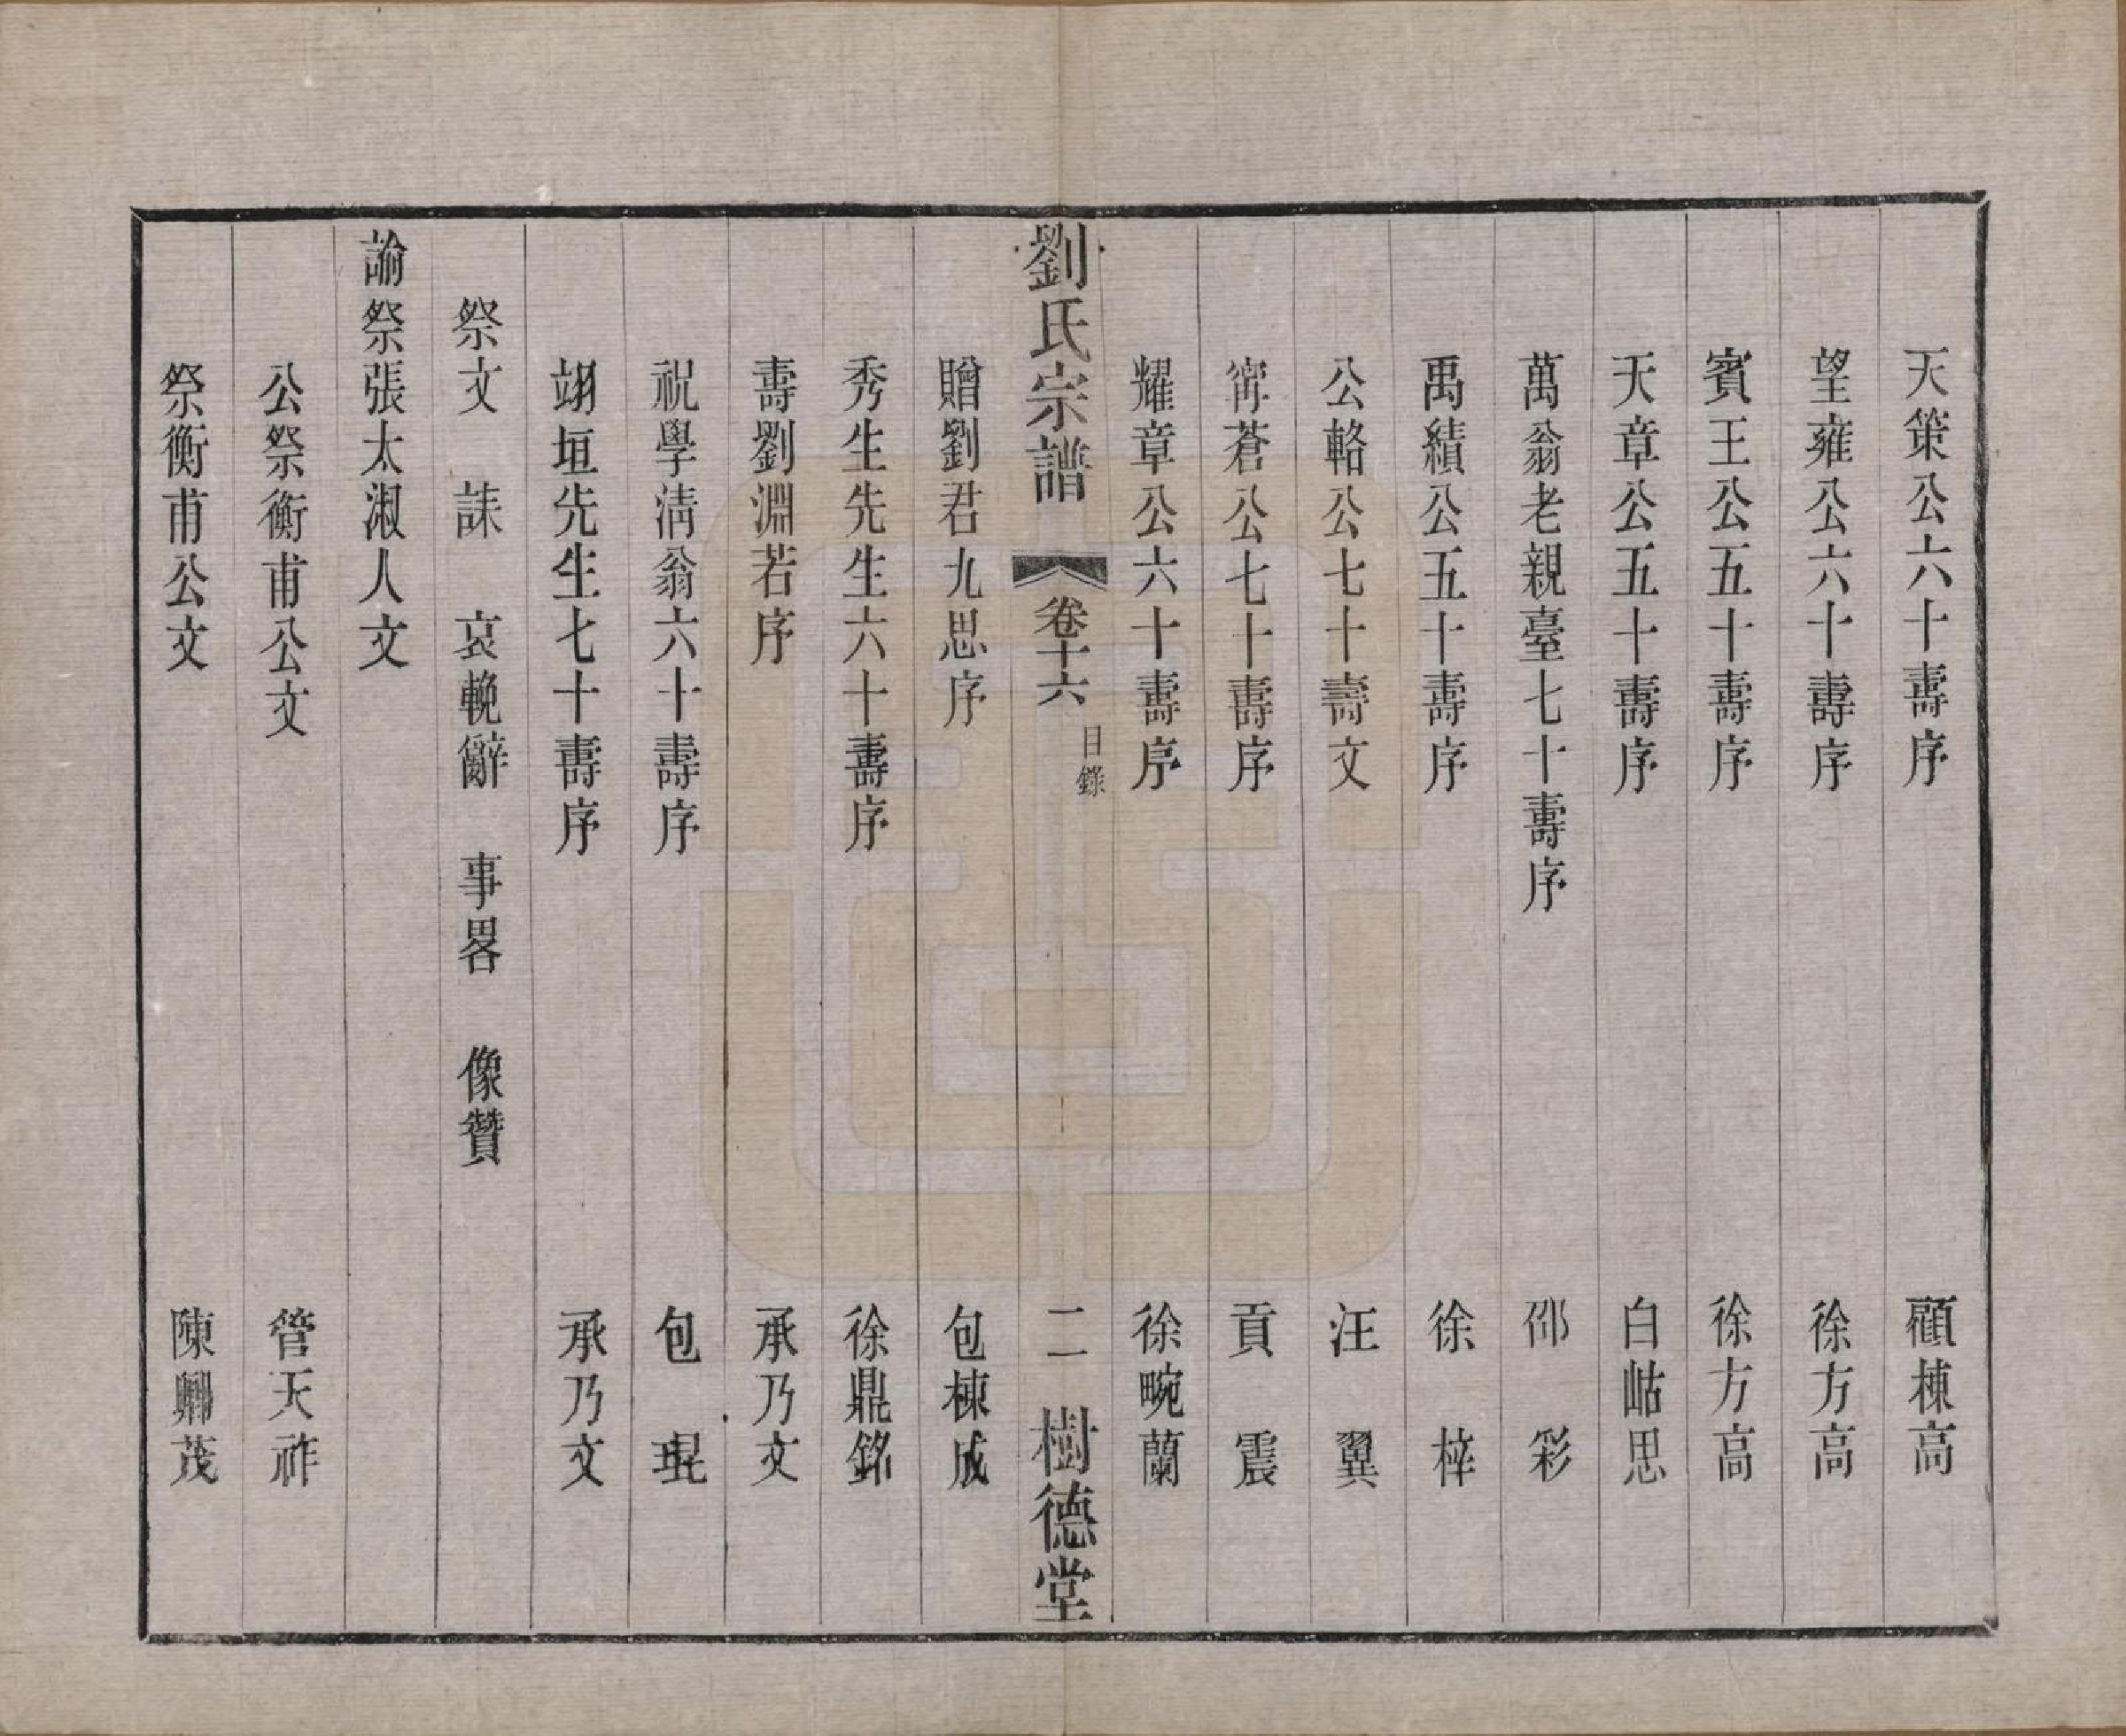 天策公六十壽序　顧棟高
望雍公六十壽序　徐方高
賓王公五十壽序　徐方高
天章公五十壽序　白岵思
萬翁老親臺七十壽序　邵彩
禹績公五十壽序　徐梓
公輅公七十壽文　汪翼
甯蒼公七十壽序　貢震
耀章公六十壽序　徐畹蘭
劉氏宗譜　卷十六　目錄　二　樹德堂
贈劉君九思序　包棟成
秀生先生六十壽序　徐鼎銘
壽劉淵若序　承乃文
祝學清翁六十壽序　包琨
翊垣先生七十壽序　承乃文
祭文　誄　哀輓辭　事畧　像贊
諭祭張太淑人文
公祭衡甫公文　管天祚
祭衡甫公文　陳卿茂